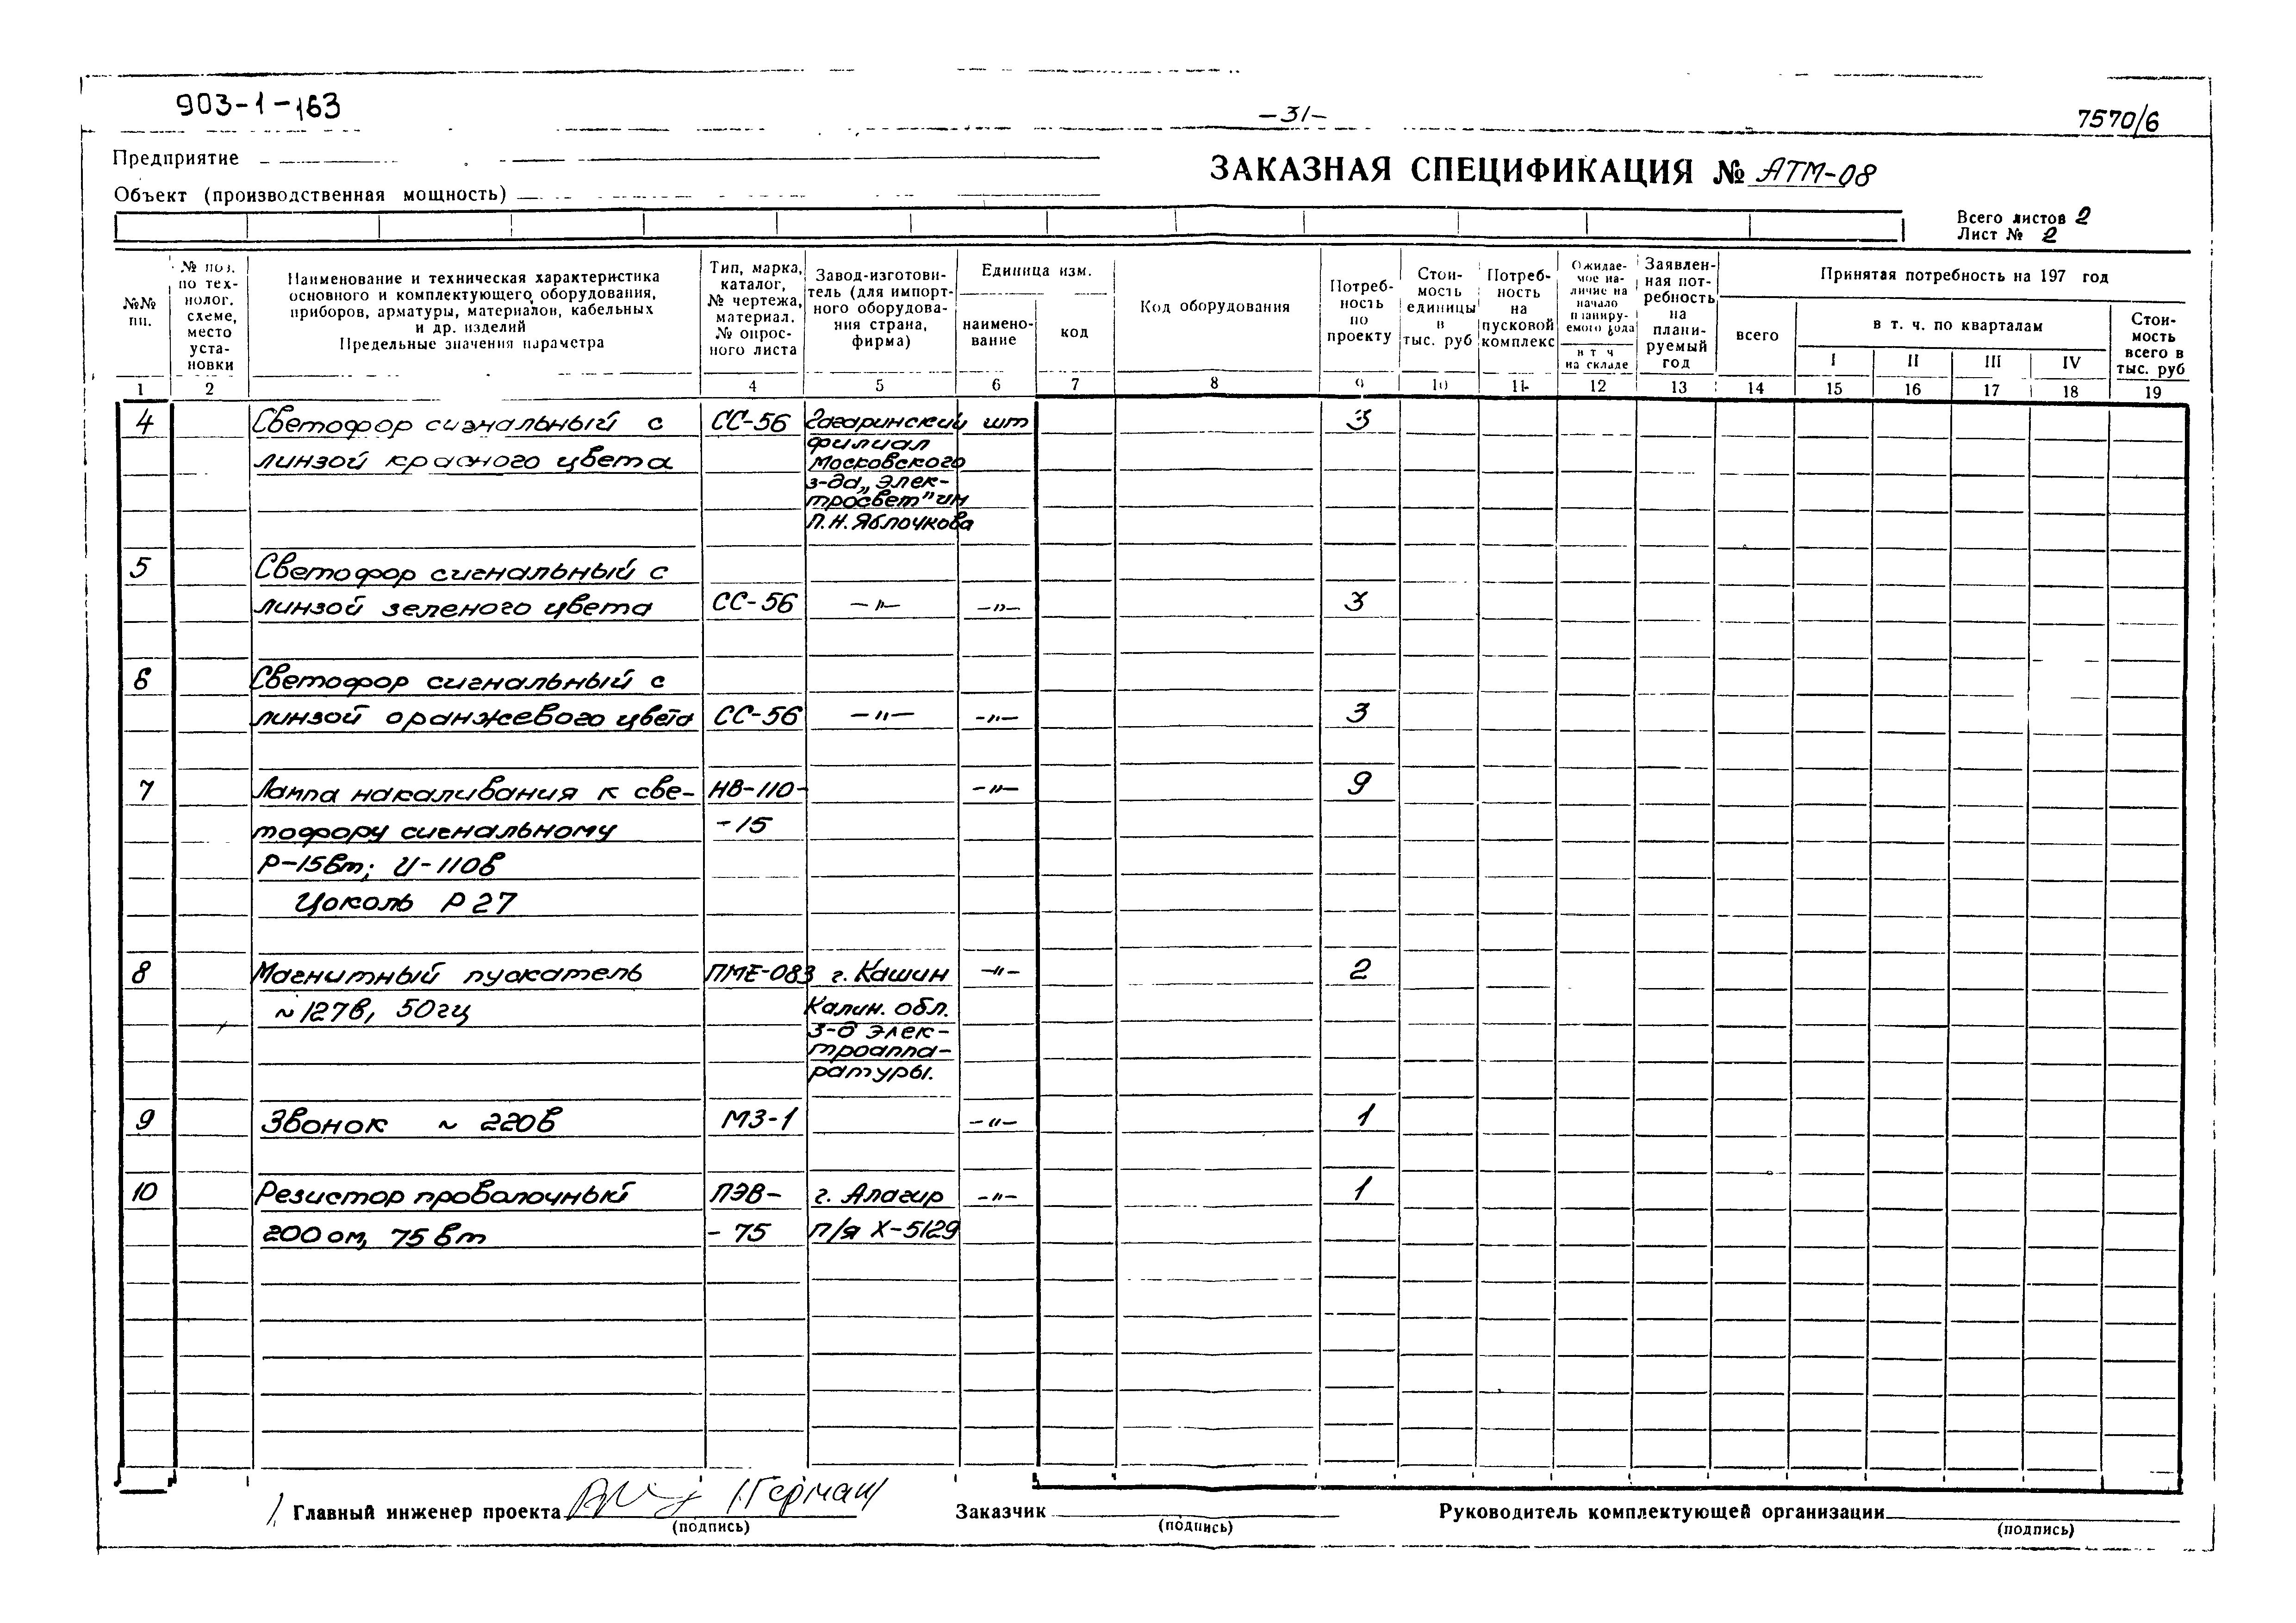 903-1-163
-31-
7570/6
Предприятие
ЗАКАЗНАЯ СПЕЦИФИКАЦИЯ № АТМ-08
Объект (производственная мощность)
Всего листов 2
Лист № 2
№№ пп.
№ поз. по тех-нолог. схеме, место уста-новки
Наименование и техническая характеристика
основного и комплектующего оборудования,
приборов, арматуры, материалов, кабельных
и др. изделий
Предельные значения параметра
Тип, марка, каталог, № чертежа, материал. № опрос-ного листа
Завод-изготови-тель (для импорт-ного оборудова-ния страна, фирма)
Единица изм.
наимено-вание
код
Код оборудования
Потреб-ность по проекту
Стои-мость единицы в тыс. руб
Потреб-ность на пусковой комплекс
Ожидае-мое на-личие на начало планиру-емого года
в т ч на складе
Заявлен-ная пот-ребность на плани-руемый год
Принятая потребность на 197 год
всего
в т. ч. по кварталам
I II III IV
Стои-мость всего в тыс. руб
1 2 4 5 6 7 8 9 10 11 12 13 14 15 16 17 18 19
4 Светофор сигнальный с СС-56 Гагаринский шт 3
филиал
линзой красного цвета Московского
з-да „Элек-
тросвет" им
П.Н. Яблочкова
5 Светофор сигнальный с
линзой зеленого цвета СС-56 —"— —"— 3
6 Светофор сигнальный с
линзой оранжевого цвета СС-56 —"— —"— 3
7 Лампа накаливания к све- НВ-110- —"— 9
тофору сигнальному -15
Р-15вт; U-110в
Цоколь Р27
8 Магнитный пускатель ПМЕ-083 г. Кашин —"— 2
~127в, 50гц Калин. обл.
з-д элек-
троаппа-
ратуры.
9 Звонок ~ 220в МЗ-1 —"— 1
10 Резистор проволочный ПЭВ- г. Алагир —"— 1
200 ом, 75 вт - 75 п/я Х-5129
Главный инженер проекта (Герман)
Заказчик
Руководитель комплектующей организации
(подпись) (подпись) (подпись)